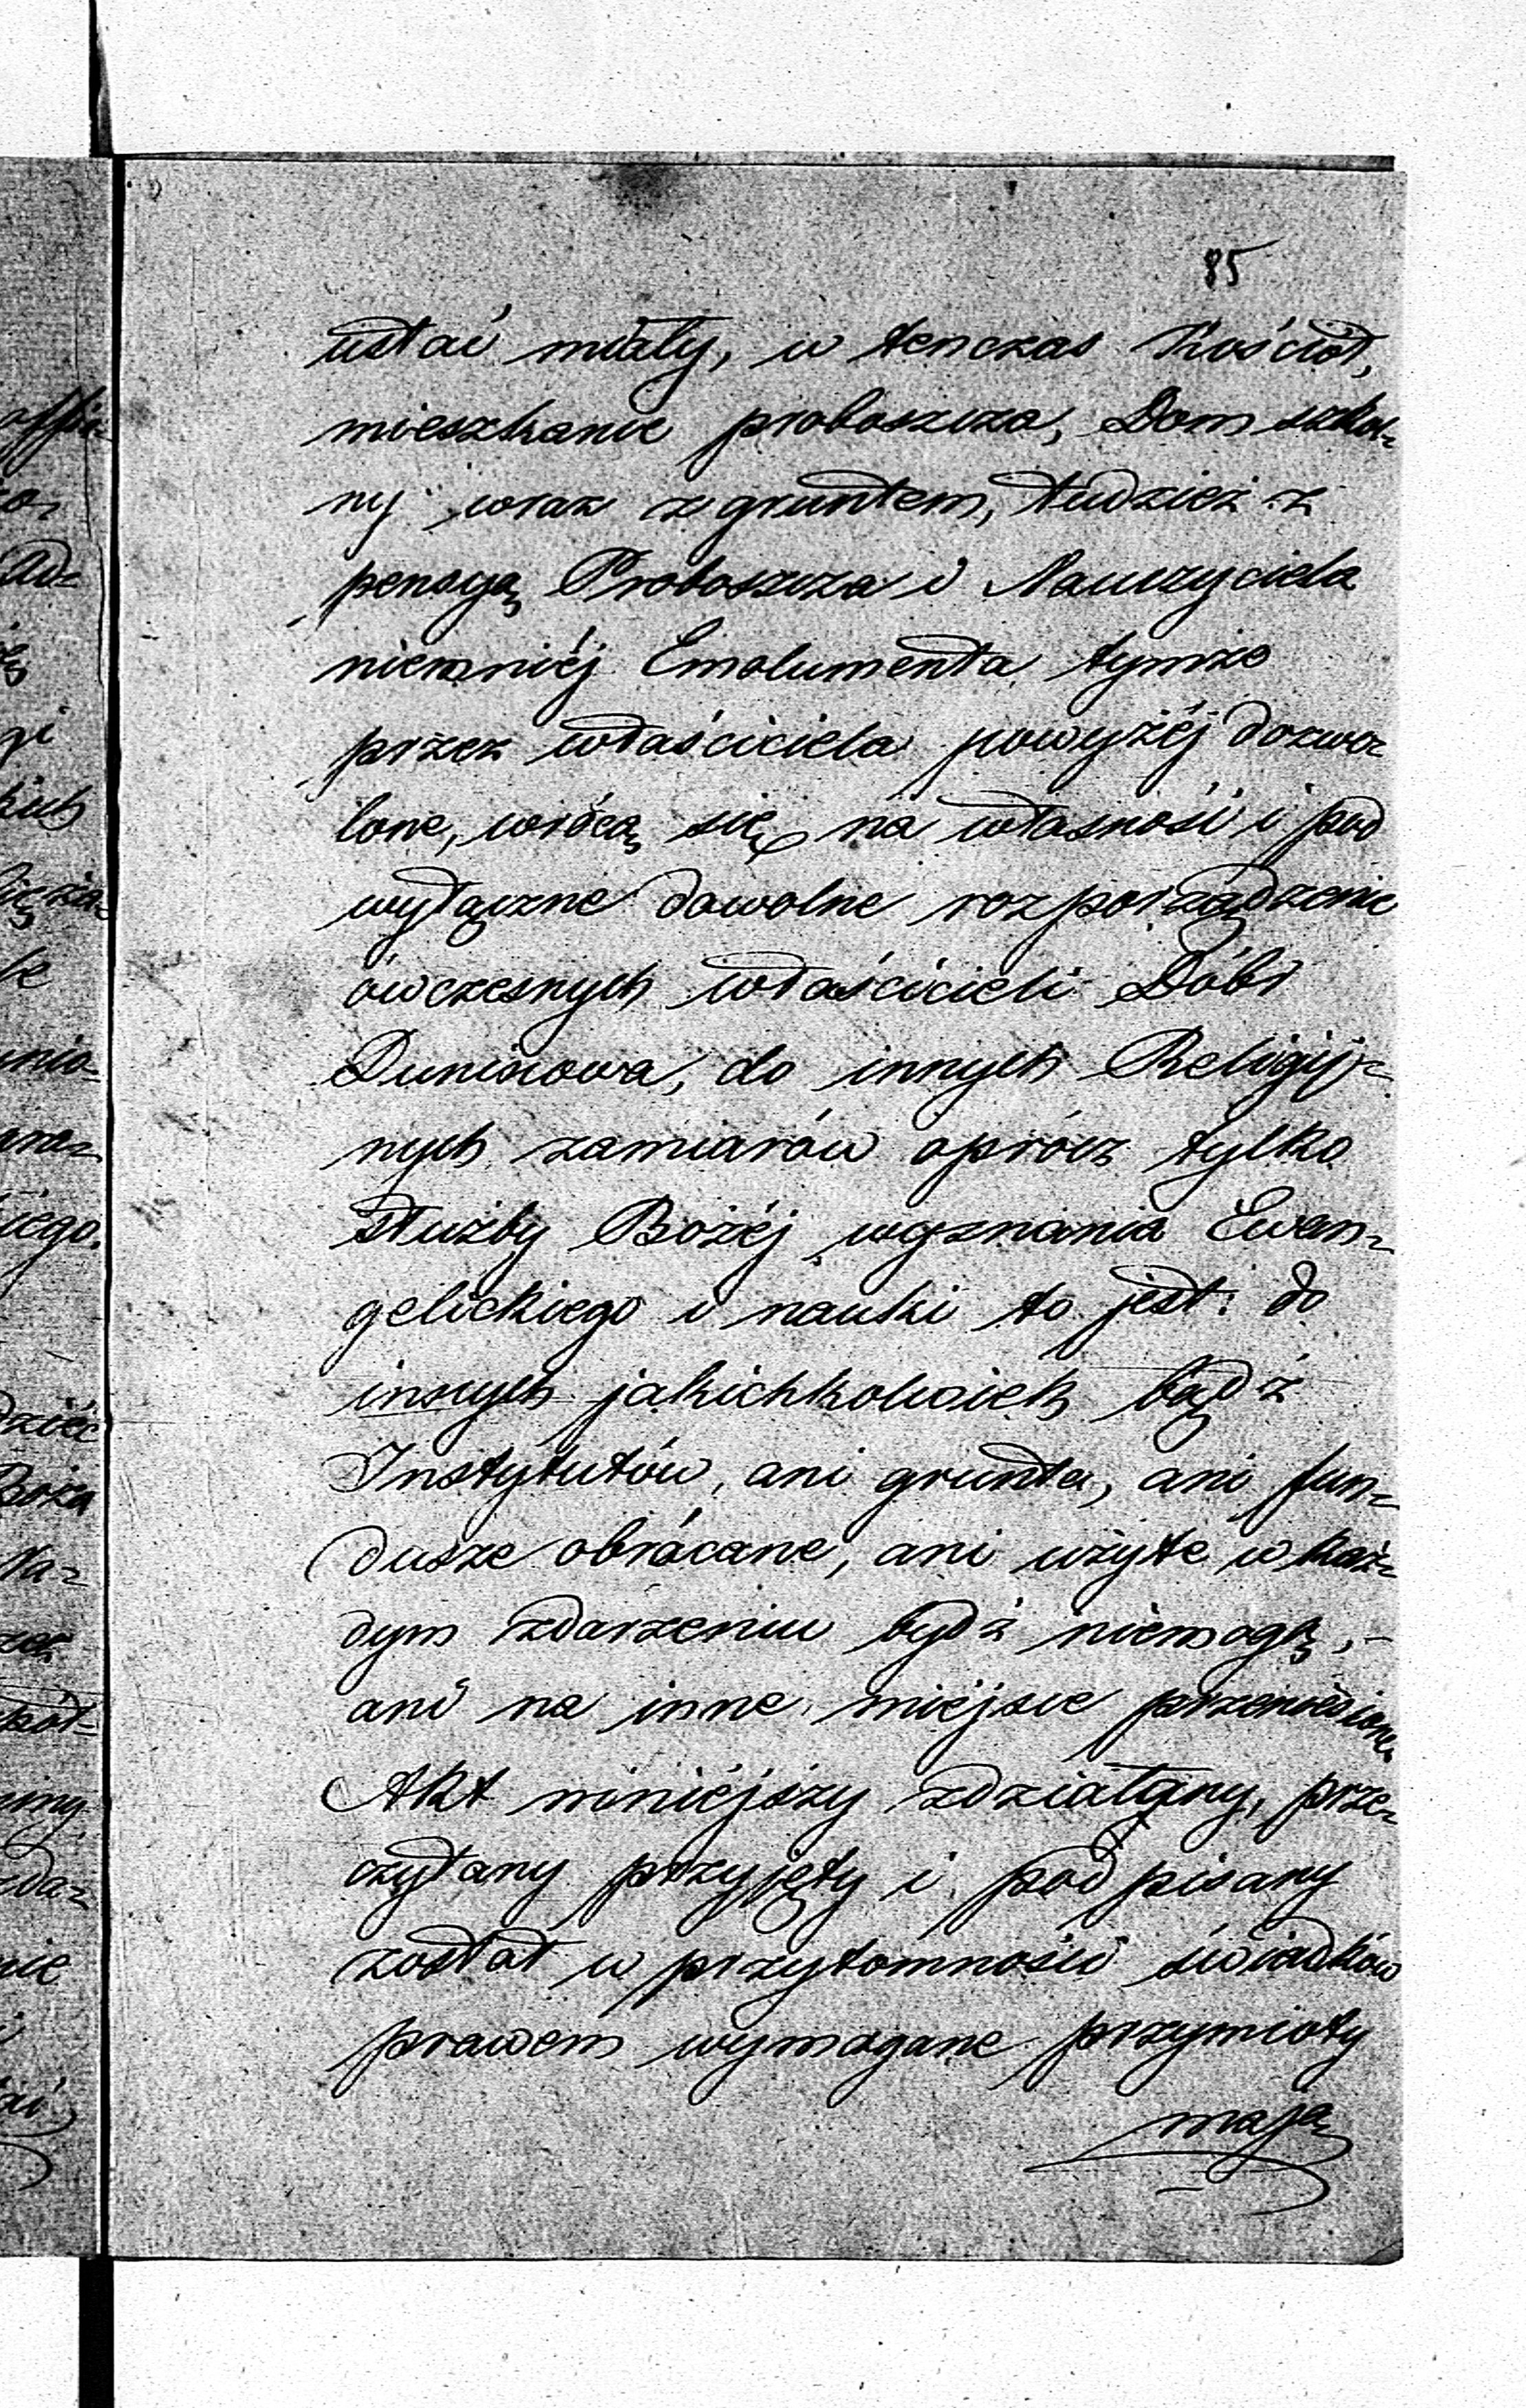 85
ustać miały, w tenczas Kościół,
mieszkanie proboszcza, Dom szkol-
ny wraz z gruntem, tudzież z
pensyą Proboszcza i Nauczyciela
niemniéj Emolumenta tymże
przez właściciela powyżéj dozwo-
lone, wrócą się na własność i pod
wyłączne dowolne rozporządzenie
ówczesnych właścicieli Dóbr
Duninowa, do innych Religij-
nych zamiarów oprócz tylko
służby Bożéj wyznania Ewan-
gelickiego i nauki to jest: do
inszych jakichkolwiek bądź
Instytutów, ani grunta, ani fun-
dusze obrácane, ani użyte w każ-
dym zdarzeniu bydź niemogą,-
ani na inne miéjsce przeniesione.
Akt niniéjszy zdziałany, prze-
czytany przyjęty i podpisany
został w przytomności świadków
prawem wymagane przymioty
mają